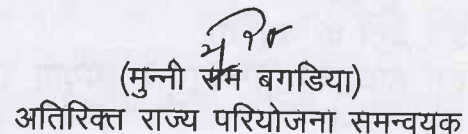 (मुन्नी राम बगडिया)
अतिरिक्त राज्य परियोजना समन्वयक